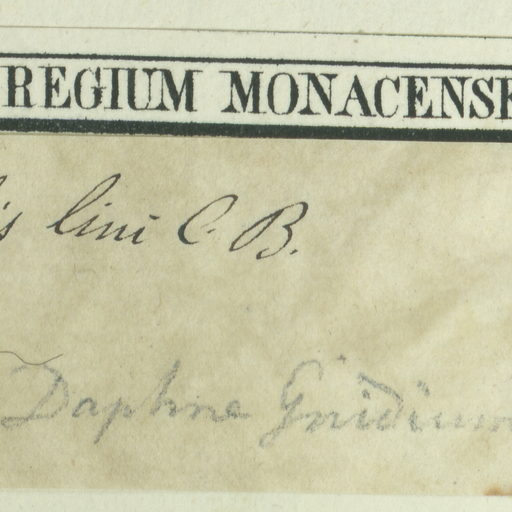 REGIUM MONACENSE
is lini C. B.
Daphne Gnidium